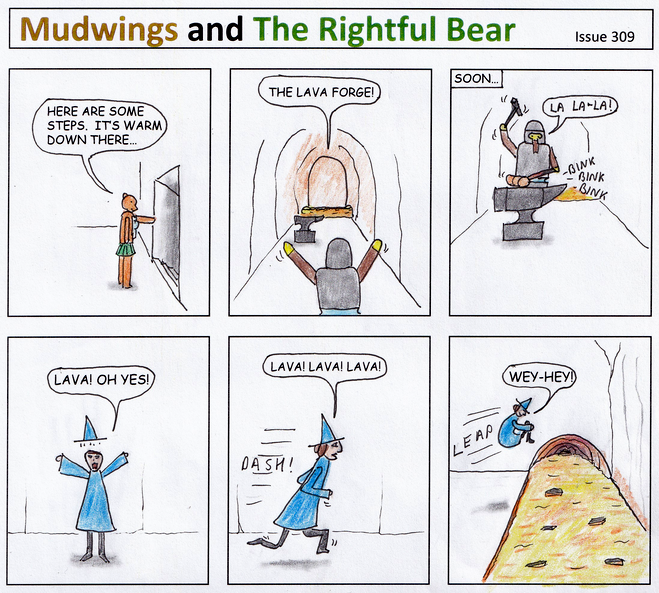 Mudwings and The Rightful Bear
Issue 309
HERE ARE SOME
STEPS. IT'S WARM
DOWN THERE...
THE LAVA FORGE!
SOON...
LA LA-LA!
BINK
BINK
BINK
LAVA! OH YES!
LAVA! LAVA! LAVA!
DASH!
WEY-HEY!
LEAP